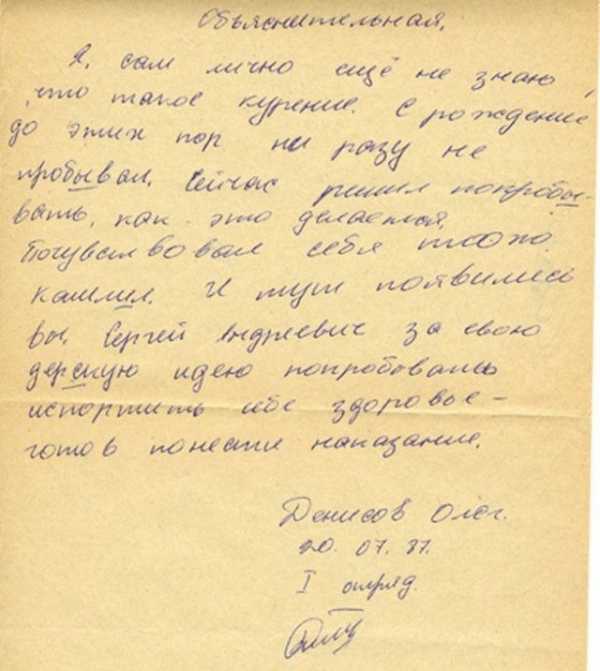 Объяснительная.
Я, сам лично ещё не знаю,
что такое курение. С рождение
до этих пор ни разу не
пробывал. Сейчас решил попробы-
вать, как это делается.
Почувствовал себя плохо.
Кашлил. И тут появились
вы, Сергей Андреевич за свою
дерскую идею попробовать
испортить себе здоровье –
готов понести наказание.
Денисов Олег.
20. 07. 87.
I отряд.